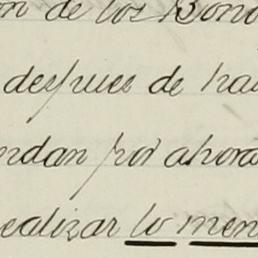 on de los Bono
despues de ha
erdan por ahora
realizar lo men